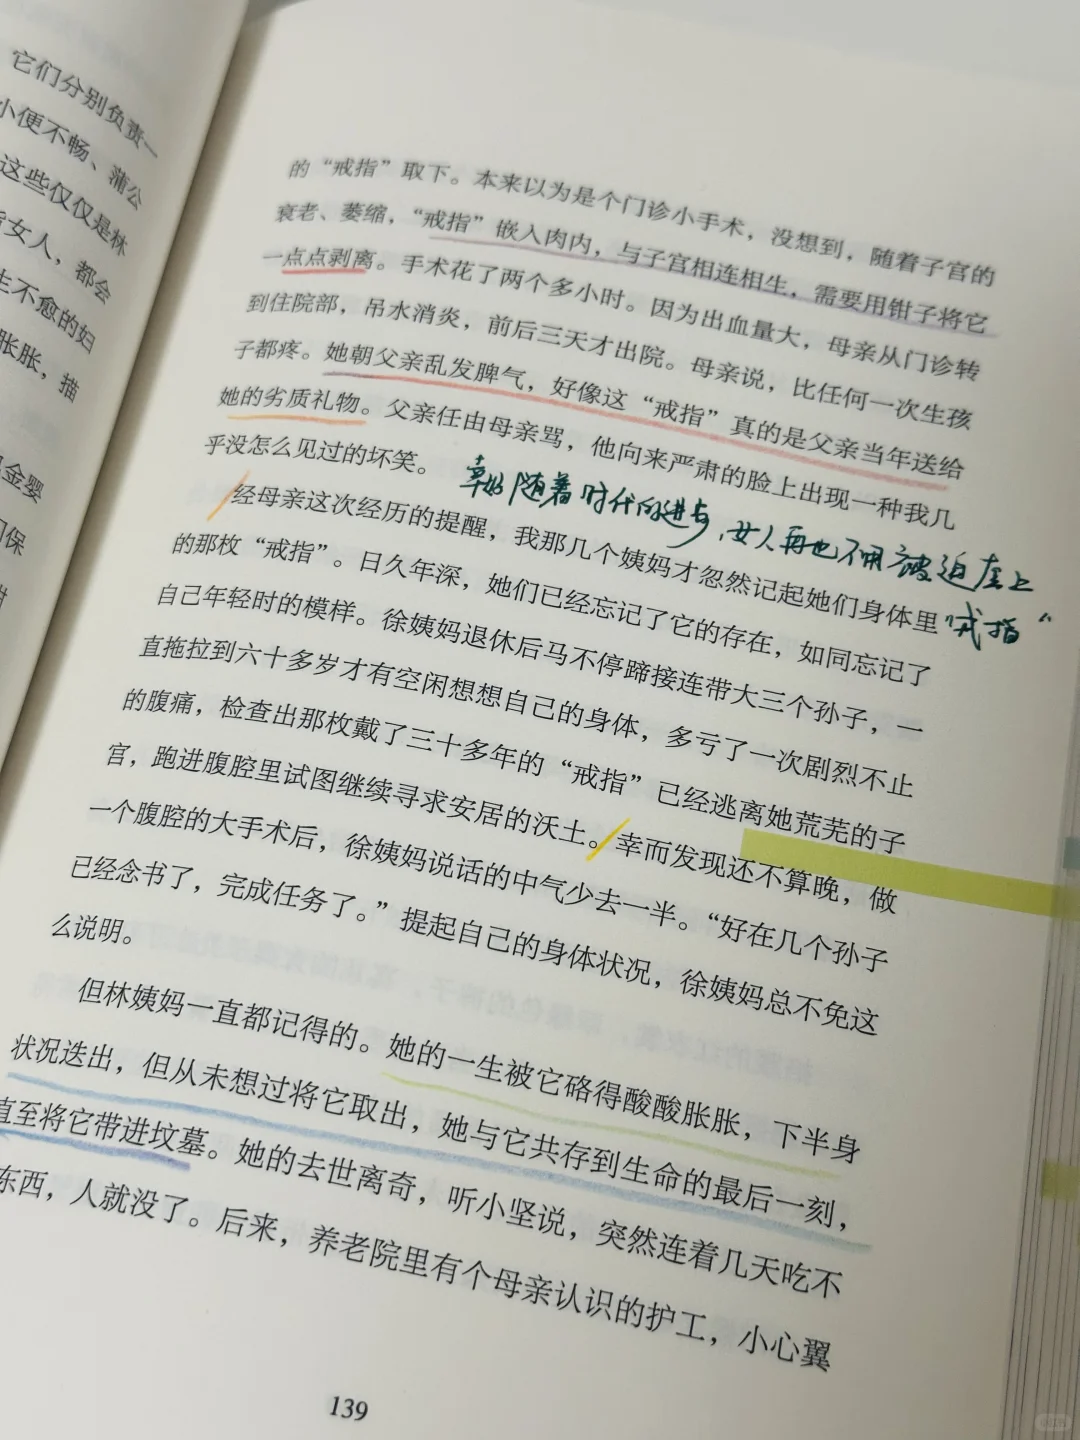 它们分别负责一
小便不畅、蒲公
这些仅仅是林
女人，都会
生不愈的妇
胀胀，描
金婴
保
的“戒指”取下。本来以为是个门诊小手术，没想到，随着子宫的
衰老、萎缩，“戒指”嵌入肉内，与子宫相连相生，需要用钳子将它
一点点剥离。手术花了两个多小时。因为出血量大，母亲从门诊转
到住院部，吊水消炎，前后三天才出院。母亲说，比任何一次生孩
子都疼。她朝父亲乱发脾气，好像这“戒指”真的是父亲当年送给
她的劣质礼物。父亲任由母亲骂，他向来严肃的脸上出现一种我几
乎没怎么见过的坏笑。
幸好随着时代的进步，女人再也不用被迫套上
“戒指“
经母亲这次经历的提醒，我那几个姨妈才忽然记起她们身体里
的那枚“戒指”。日久年深，她们已经忘记了它的存在，如同忘记了
自己年轻时的模样。徐姨妈退休后马不停蹄接连带大三个孙子，一
直拖拉到六十多岁才有空闲想想自己的身体，多亏了一次剧烈不止
的腹痛，检查出那枚戴了三十多年的“戒指”已经逃离她荒芜的子
宫，跑进腹腔里试图继续寻求安居的沃土。幸而发现还不算晚，做
一个腹腔的大手术后，徐姨妈说话的中气少去一半。“好在几个孙子
已经念书了，完成任务了。”提起自己的身体状况，徐姨妈总不免这
么说明。
但林姨妈一直都记得的。她的一生被它硌得酸酸胀胀，下半身
状况迭出，但从未想过将它取出，她与它共存到生命的最后一刻，
直至将它带进坟墓。她的去世离奇，听小坚说，突然连着几天吃不
东西，人就没了。后来，养老院里有个母亲认识的护工，小心翼
139